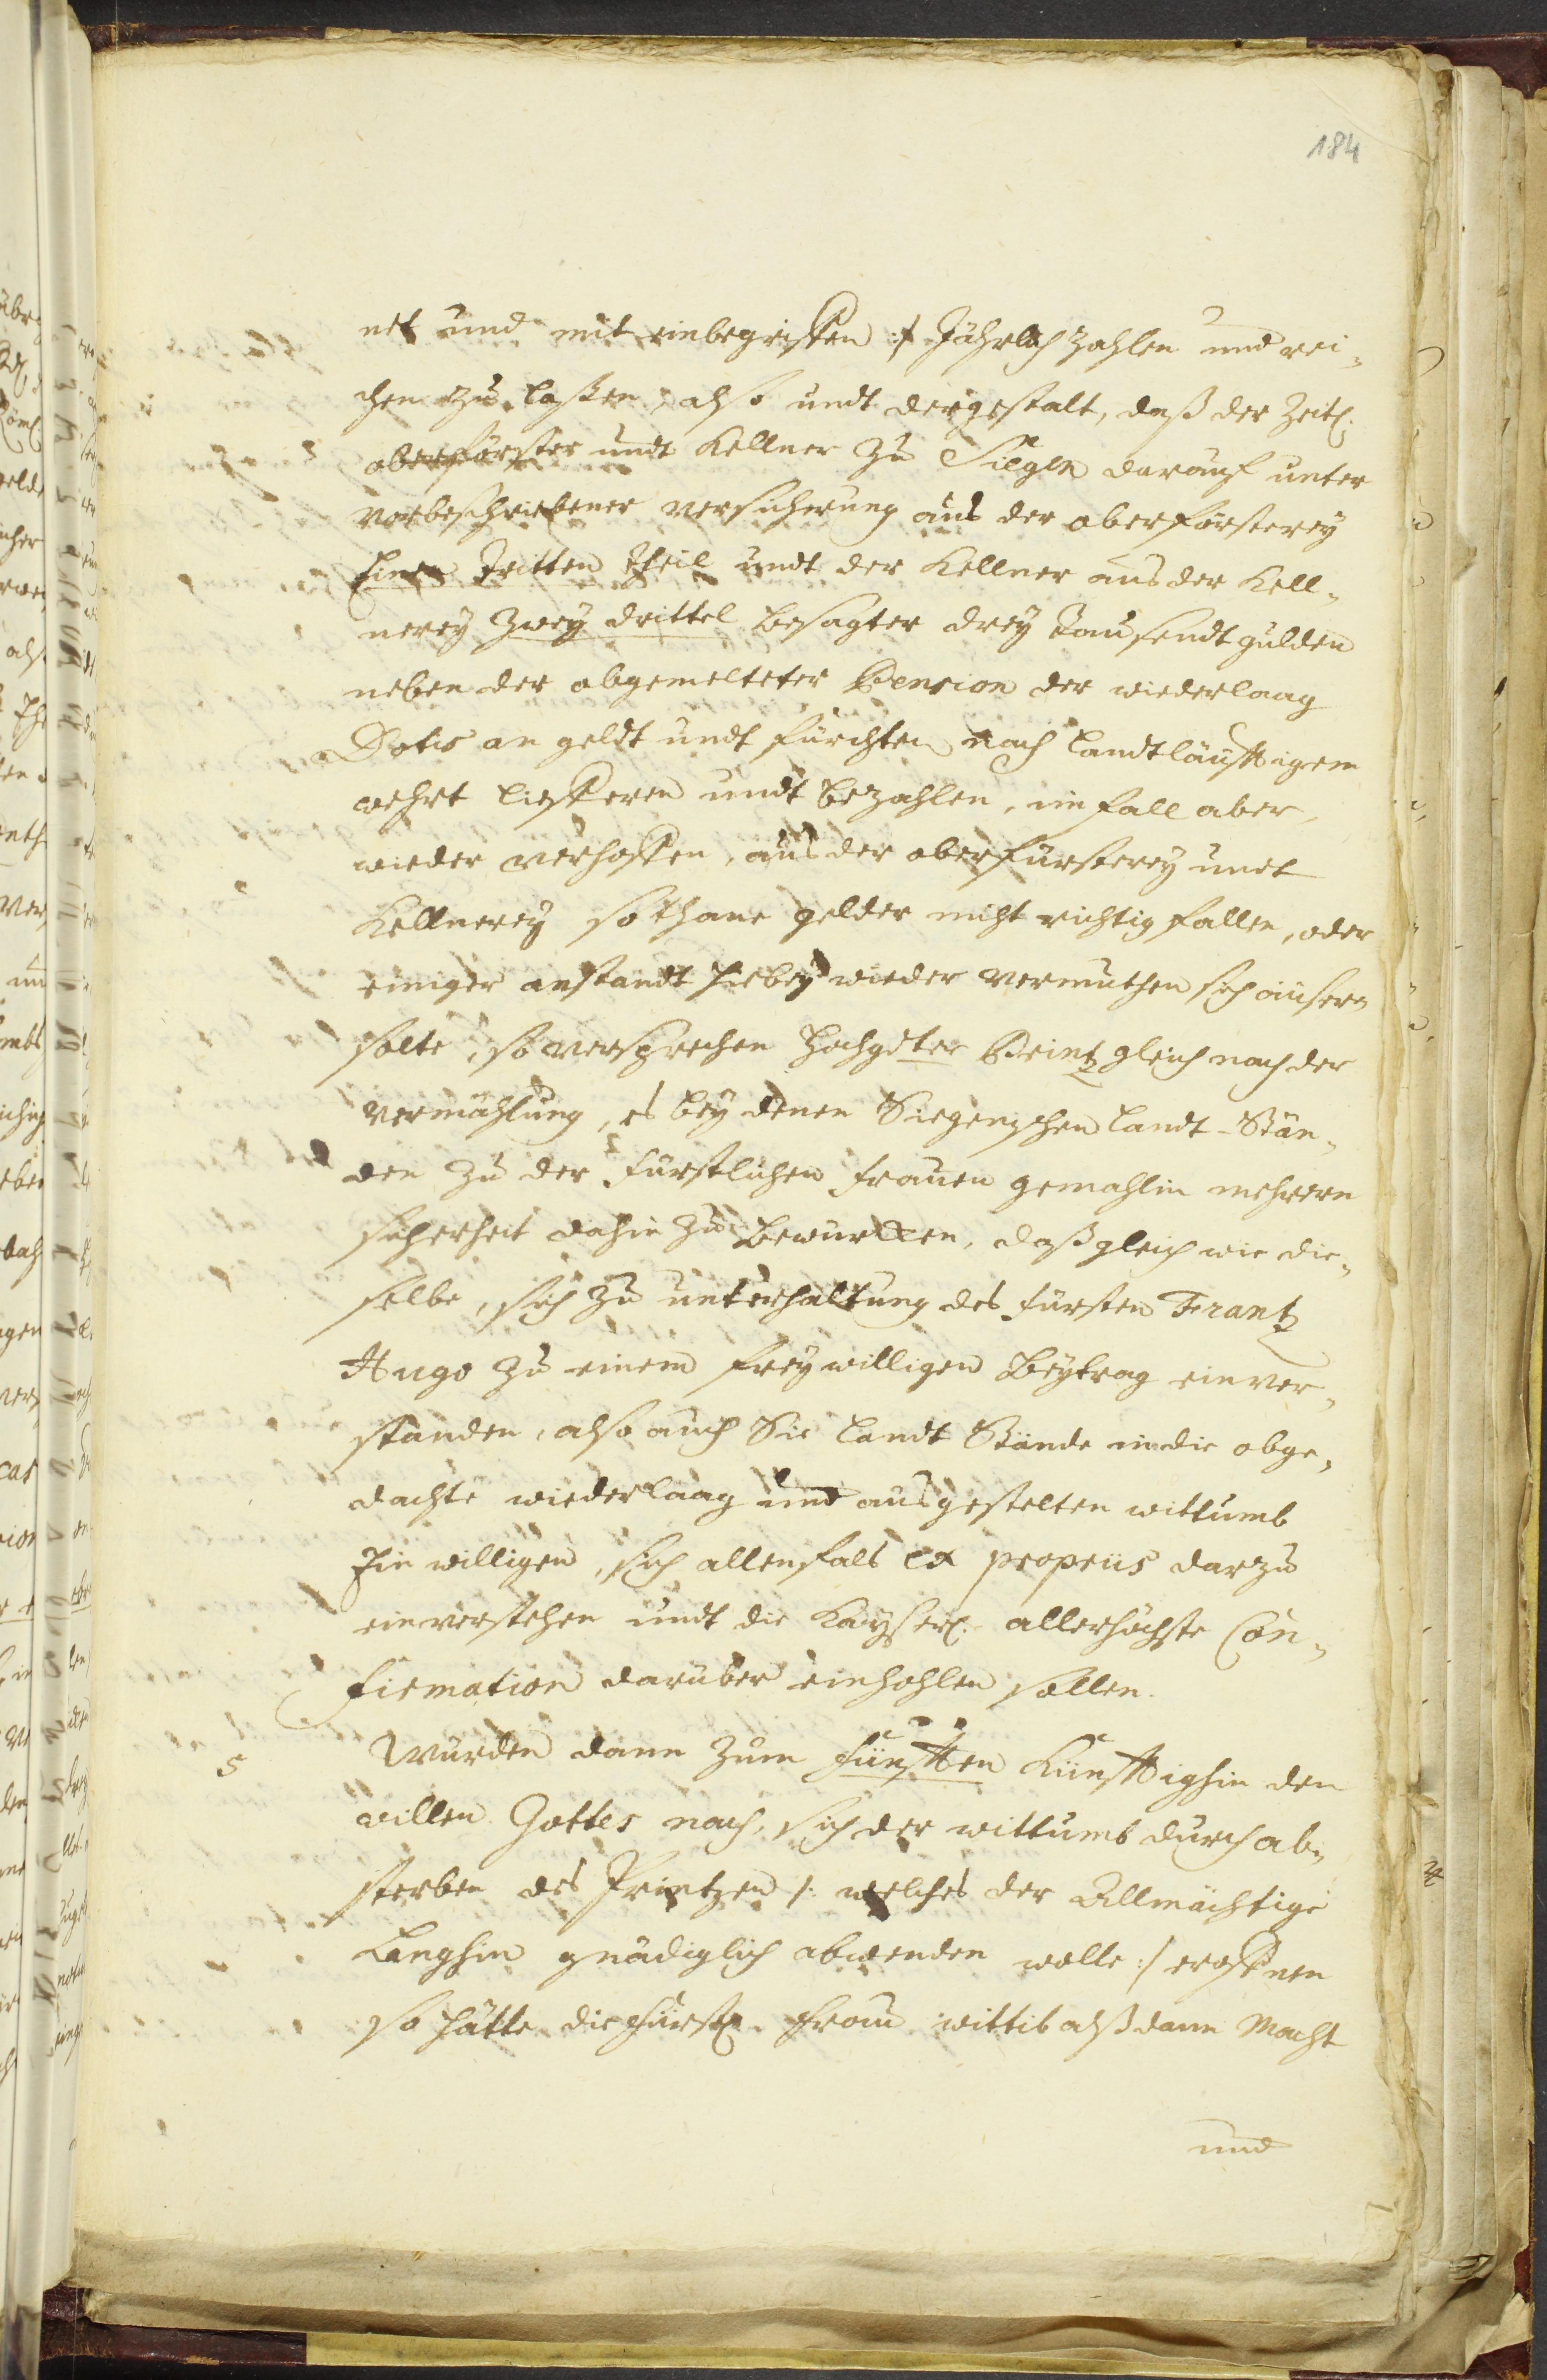 184
net und mit einbegriffen :/ Jährlich zahlen und rei„
chen zu laßen, also undt dergestalt, daß der Zeitl.
oberförster undt Kellner zu Siegen darauf unter
vorbeschriebener versicherung aus der oberförsterey
Einen Dritten theil undt der Kellner aus der Kell„
nerey zwey drittel besagter drey Tausendt gulden
neben der abgemelteter Pension der wiederlaag
Dotis an geldt undt früchten nach landtläufftigem
wehrt liefferen undt bezahlen, im fall aber,
wieder verhoffen, aus der oberförsterey undt
Kellnerey sothane gelder nicht richtig fallen, oder
einiger anstandt hiebey wieder vermuthen sich äusern
solte, so versprechen hochgdter Printz gleich nach der
vermählung, es bey denen Siegenschen landt-Stän„
den zu der fürstlichen frauen gemahlin mehrern
sicherheit dahin zu bewurcken, daß gleich wie die„
selbe, sich zu unterhaltung des fürsten Frantz
Hugo zu einem freywilligen Beytrag einver„
standen, also auch Sie landt Stände in die obge„
dachte wiederlaag und ausgestelten wittumb
Ein willigen, sich allenfals ex propriis darzu
einverstehen undt die Kayserl. allerhöchste Con„
firmation darüber einhohlen sollen.
5 Würden dann zum fünfften Künfftighin den
willen Gottes nach, sich der wittumb durch ab„
sterben des Printzen /: welches der Allmächtige
Langhin gnädiglich abwenden wolle :/ eroffnen
so hätte die fürstl. frau wittib alßdann Macht
und